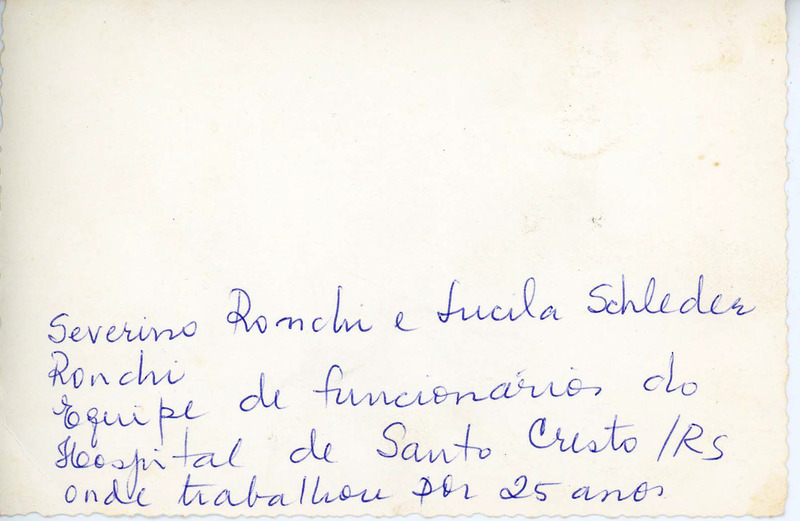 Severino Ronchi e Lucila Schleder
Ronchi
Equipe de funcionários do
Hospital de Santo Cristo/RS
onde trabalhou por 25 anos